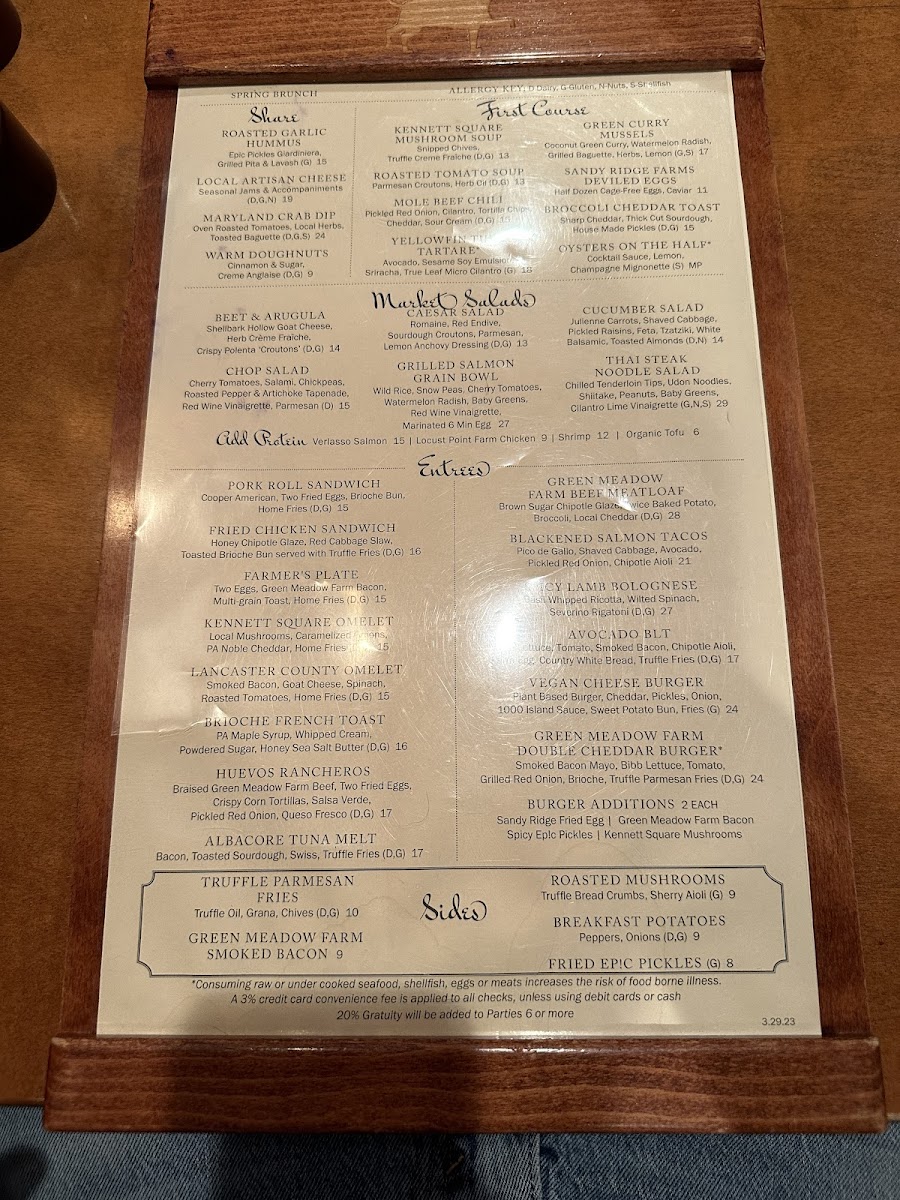 SPRING BRUNCH
ALLERGY KEY: D-Dairy, G-Gluten, N-Nuts, S-Shellfish
Share
ROASTED GARLIC
HUMMUS
Epic Pickles Giardiniera,
Grilled Pita & Lavash (G) 15
LOCAL ARTISAN CHEESE
Seasonal Jams & Accompaniments
(D,G,N) 19
MARYLAND CRAB DIP
Oven Roasted Tomatoes, Local Herbs,
Toasted Baguette (D,G,S) 24
WARM DOUGHNUTS
Cinnamon & Sugar,
Creme Anglaise (D,G) 9
First Course
KENNETT SQUARE
MUSHROOM SOUP
Snipped Chives,
Truffle Creme Fraîche (D,G) 13
ROASTED TOMATO SOUP
Parmesan Croutons, Herb Oil (D,G) 13
MOLE BEEF CHILI
Pickled Red Onion, Cilantro, Tortilla Chips
Cheddar, Sour Cream (D,G)
YELLOWFIN TUNA
TARTARE*
Avocado, Sesame Soy Emulsion,
Sriracha, True Leaf Micro Cilantro (G) 18
GREEN CURRY
MUSSELS
Coconut Green Curry, Watermelon Radish,
Grilled Baguette, Herbs, Lemon (G,S) 17
SANDY RIDGE FARMS
DEVILED EGGS
Half Dozen Cage-Free Eggs, Caviar 11
BROCCOLI CHEDDAR TOAST
Sharp Cheddar, Thick Cut Sourdough,
House Made Pickles (D,G) 15
OYSTERS ON THE HALF*
Cocktail Sauce, Lemon,
Champagne Mignonette (S) MP
Market Salads
BEET & ARUGULA
Shellbark Hollow Goat Cheese,
Herb Crème Fraîche,
Crispy Polenta 'Croutons' (D,G) 14
CHOP SALAD
Cherry Tomatoes, Salami, Chickpeas,
Roasted Pepper & Artichoke Tapenade,
Red Wine Vinaigrette, Parmesan (D) 15
CAESAR SALAD
Romaine, Red Endive,
Sourdough Croutons, Parmesan,
Lemon Anchovy Dressing (D,G) 13
GRILLED SALMON
GRAIN BOWL
Wild Rice, Snow Peas, Cherry Tomatoes,
Watermelon Radish, Baby Greens,
Red Wine Vinaigrette,
Marinated 6 Min Egg 27
CUCUMBER SALAD
Julienne Carrots, Shaved Cabbage,
Pickled Raisins, Feta, Tzatziki, White
Balsamic, Toasted Almonds (D,N) 14
THAI STEAK
NOODLE SALAD
Chilled Tenderloin Tips, Udon Noodles,
Shiitake, Peanuts, Baby Greens,
Cilantro Lime Vinaigrette (G,N,S) 29
Add Protein Verlasso Salmon 15 | Locust Point Farm Chicken 9 | Shrimp 12 | Organic Tofu 6
Entrees
PORK ROLL SANDWICH
Cooper American, Two Fried Eggs, Brioche Bun,
Home Fries (D,G) 15
FRIED CHICKEN SANDWICH
Honey Chipotle Glaze, Red Cabbage Slaw,
Toasted Brioche Bun served with Truffle Fries (D,G) 16
FARMER'S PLATE
Two Eggs, Green Meadow Farm Bacon,
Multi-grain Toast, Home Fries (D,G) 15
KENNETT SQUARE OMELET
Local Mushrooms, Caramelized Onions,
PA Noble Cheddar, Home Fries 15
LANCASTER COUNTY OMELET
Smoked Bacon, Goat Cheese, Spinach,
Roasted Tomatoes, Home Fries (D,G) 15
BRIOCHE FRENCH TOAST
PA Maple Syrup, Whipped Cream,
Powdered Sugar, Honey Sea Salt Butter (D,G) 16
HUEVOS RANCHEROS
Braised Green Meadow Farm Beef, Two Fried Eggs,
Crispy Corn Tortillas, Salsa Verde,
Pickled Red Onion, Queso Fresco (D,G) 17
ALBACORE TUNA MELT
Bacon, Toasted Sourdough, Swiss, Truffle Fries (D,G) 17
GREEN MEADOW
FARM BEEF MEATLOAF
Brown Sugar Chipotle Glaze, Twice Baked Potato,
Broccoli, Local Cheddar (D,G) 28
BLACKENED SALMON TACOS
Pico de Gallo, Shaved Cabbage, Avocado,
Pickled Red Onion, Chipotle Aioli 21
LAMB BOLOGNESE
Whipped Ricotta, Wilted Spinach,
Severino Rigatoni (D,G) 27
AVOCADO BLT
Lettuce, Tomato, Smoked Bacon, Chipotle Aioli,
Country White Bread, Truffle Fries (D,G) 17
VEGAN CHEESE BURGER
Plant Based Burger, Cheddar, Pickles, Onion,
1000 Island Sauce, Sweet Potato Bun, Fries (G) 24
GREEN MEADOW FARM
DOUBLE CHEDDAR BURGER*
Smoked Bacon Mayo, Bibb Lettuce, Tomato,
Grilled Red Onion, Brioche, Truffle Parmesan Fries (D,G) 24
BURGER ADDITIONS 2 EACH
Sandy Ridge Fried Egg | Green Meadow Farm Bacon
Spicy Ep!c Pickles | Kennett Square Mushrooms
Sides
TRUFFLE PARMESAN
FRIES
Truffle Oil, Grana, Chives (D,G) 10
GREEN MEADOW FARM
SMOKED BACON 9
ROASTED MUSHROOMS
Truffle Bread Crumbs, Sherry Aioli (G) 9
BREAKFAST POTATOES
Peppers, Onions (D,G) 9
FRIED EP!C PICKLES (G) 8
*Consuming raw or under cooked seafood, shellfish, eggs or meats increases the risk of food borne illness.
A 3% credit card convenience fee is applied to all checks, unless using debit cards or cash
20% Gratuity will be added to Parties 6 or more
3.29.23